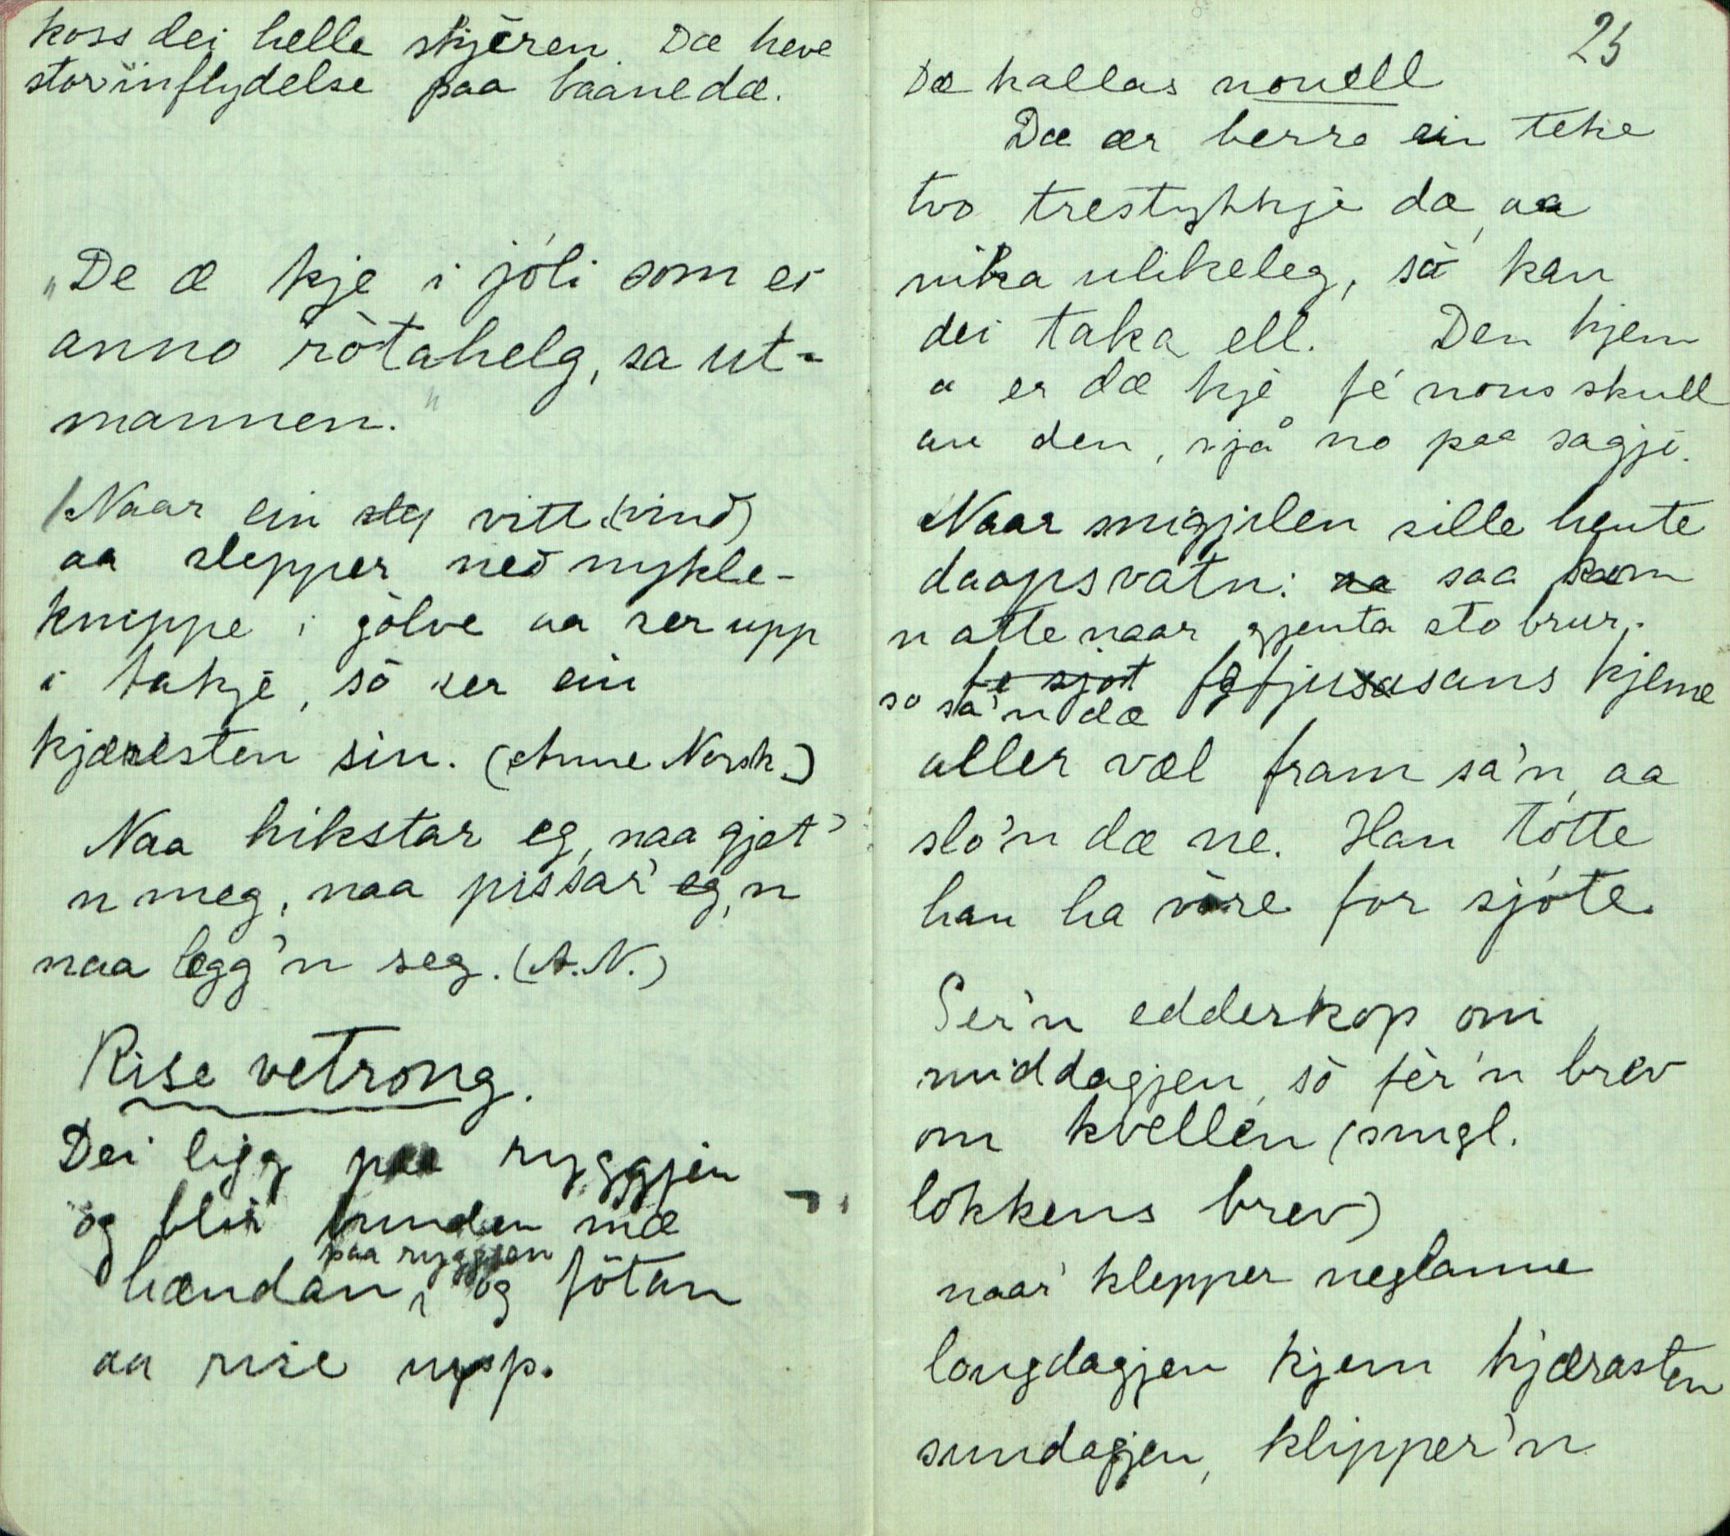 koss dei helle skjèren. Dæ heve
stor innflydelse paa baanedæ.
"De æ kje i jóli som ei
anno ròtahelg, sa ut-
mannen."
Naar ein vitt (vind)
aa slepper ned nykle-
knippe i gòlve aa ser upp
i takje, sò ser ein
kjæresten sin. (Anne Norsk.)
Naa hikstar eg, naa gjet'
n meg, naa pissar eg, n
naa legg'n seg. (A.N.)
Rise vetrong.
Dei ligg paa ryggjen
og blir bunden mæ
paa ryggjen
hændan, og fötan
aa rise upp.
25
Dæ kallas nouell
Dæ ær berre ein teke
tvo trestykkje dæ, aa
nika ulikeleg, så kan
dei taka ell. Den kjem
a er dæ kje fé nous skull
au den, sjå no paa sagji.
Naar smigjulen sille hente
daapsvatn: saa som
n atte naar gjenta sto brur.
fe sjot kjeme
so sa'n dæ
aller væl fram sa'n, aa
slo'n dæ ne. Han tótte
han ha vore for sjóte.
Ser'n edderkop om
middagjen, sò fèr'n brev
om kvellen (smgl.
lokkens brev)
naar klepper neglanne
longdagjen kjem kjærasten
sundagjen, klipper'n